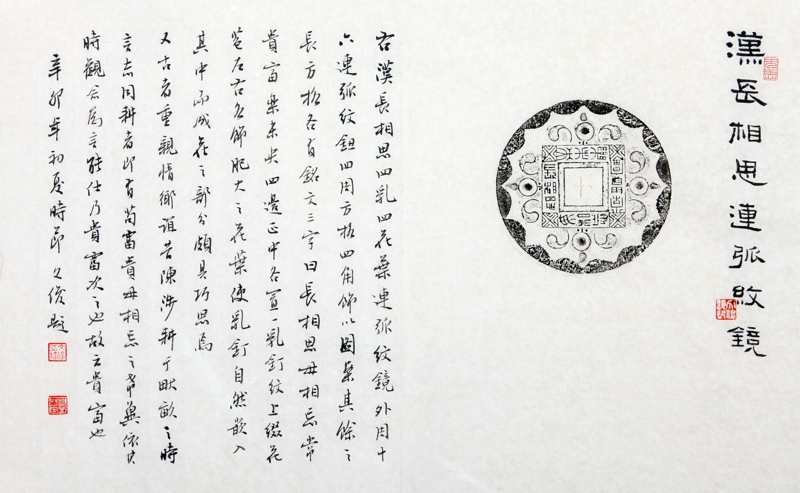 漢長相思連弧紋鏡
右漢長相思四乳四花葉連弧紋鏡外周十
六連弧紋鈕四周方格四角飾以圖案其餘之
長方格各有銘文三字曰長相思毋相忘常
貴富樂未央四邊正中各置一乳釘紋上綴花
苞左右各飾肥大之花葉使乳釘自然嵌入
其中而成花之部分頗具巧思焉
又古者重親情鄉誼昔陳涉耕于畎畝之時
言志同耕者即有苟富貴毋相忘之希冀依其
時觀念局言能仕乃貴富次之也故云貴富也
辛卯年初夏時節久俊題